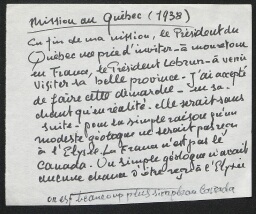 Mission au Québec (1938)
En fin de ma mission, le Président du
Québec me prie d'inviter - à mon retour
en France, le Président Lebrun - à venir
visiter sa belle province - J'ai accepté
de faire cette démarche - en sa-
chant qu'en réalité - elle serait sans
suite - pour la simple raison qu'un
modeste géologue ne serait pas reçu
à l'Elysée. La France n'est pas le
Canada. Un simple géologue n'avait
aucune chance d'être reçu à l'Elysée
on est beaucoup plus simple au Canada